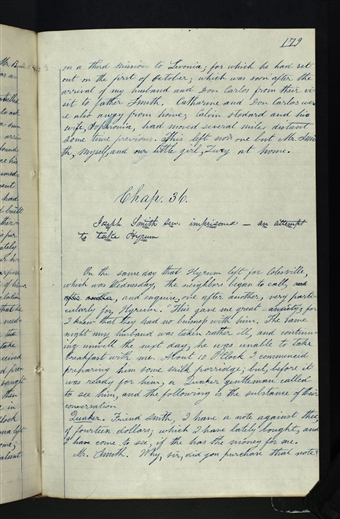 179
on a third mission to Livonia; for which he had set
out on the first of October; which was soon after the
arrival of my husband and Don Carlos from their vi-
sit to father Smith. Catharine and Don Carlos wer-
e also away from home; Calvin Stodard and his
wife, Sophronia, had moved several miles distant
some time previous. This left now one but Mr. Smi-
th, myself, and our little girl, Lucy at home.
Chap. 36.
Joseph Smith sen. imprisoned — an attempt
to take Hyrum
On the same day that Hyrum left for Colesville,
which was Wednesday, the neighbors began to call, one
after another, and enquire, one after another, very parti-
cularly for Hyrum. This gave me great anxiety; for
I knew that they had no business with him. The same
night my husband was taken rather ill, and continu-
ing unwell the next day, he was unable to take
breakfast with me. About 10 O'Clock I commenced
preparing him some milk porridge; but, before it
was ready for him, a Quaker gentleman called
to see him, and the following is the substance of their
conversation
Quaker. Friend Smith, I have a note against thee
of fourteen dollars, which I have lately bought, and
I have come to see, if thee has the money for me.
Mr. Smith. Why, sir, did you purchase that note?